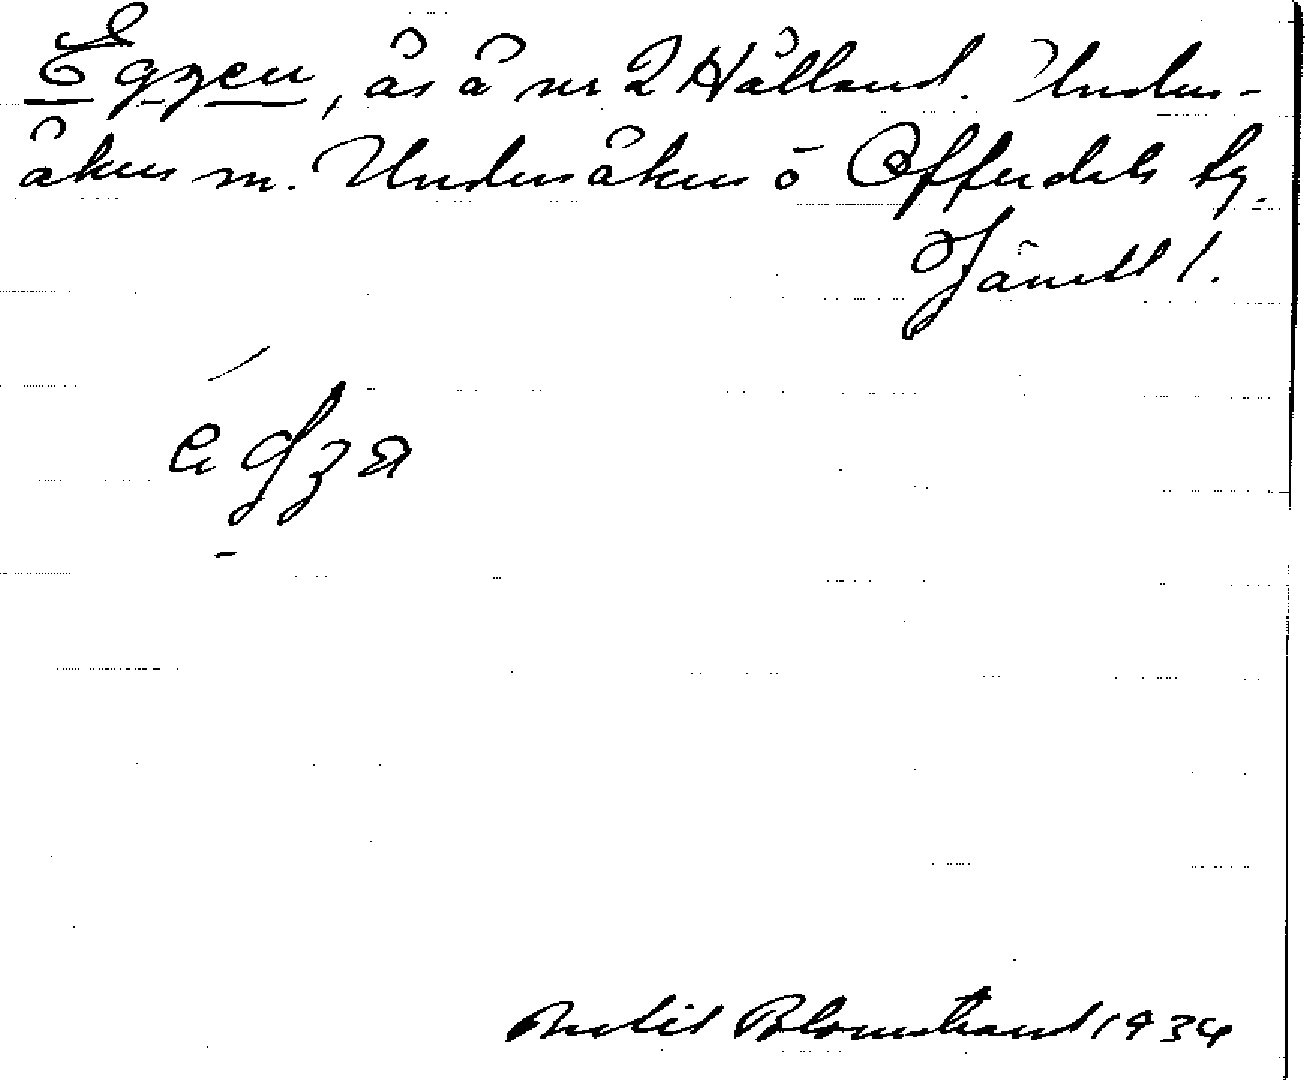 Eggen, ås å nr 2 Hålland. Unders-
åkers sn. Undersåkers o Offerdals tg.
Jämtl l.
Blomstrand 1934